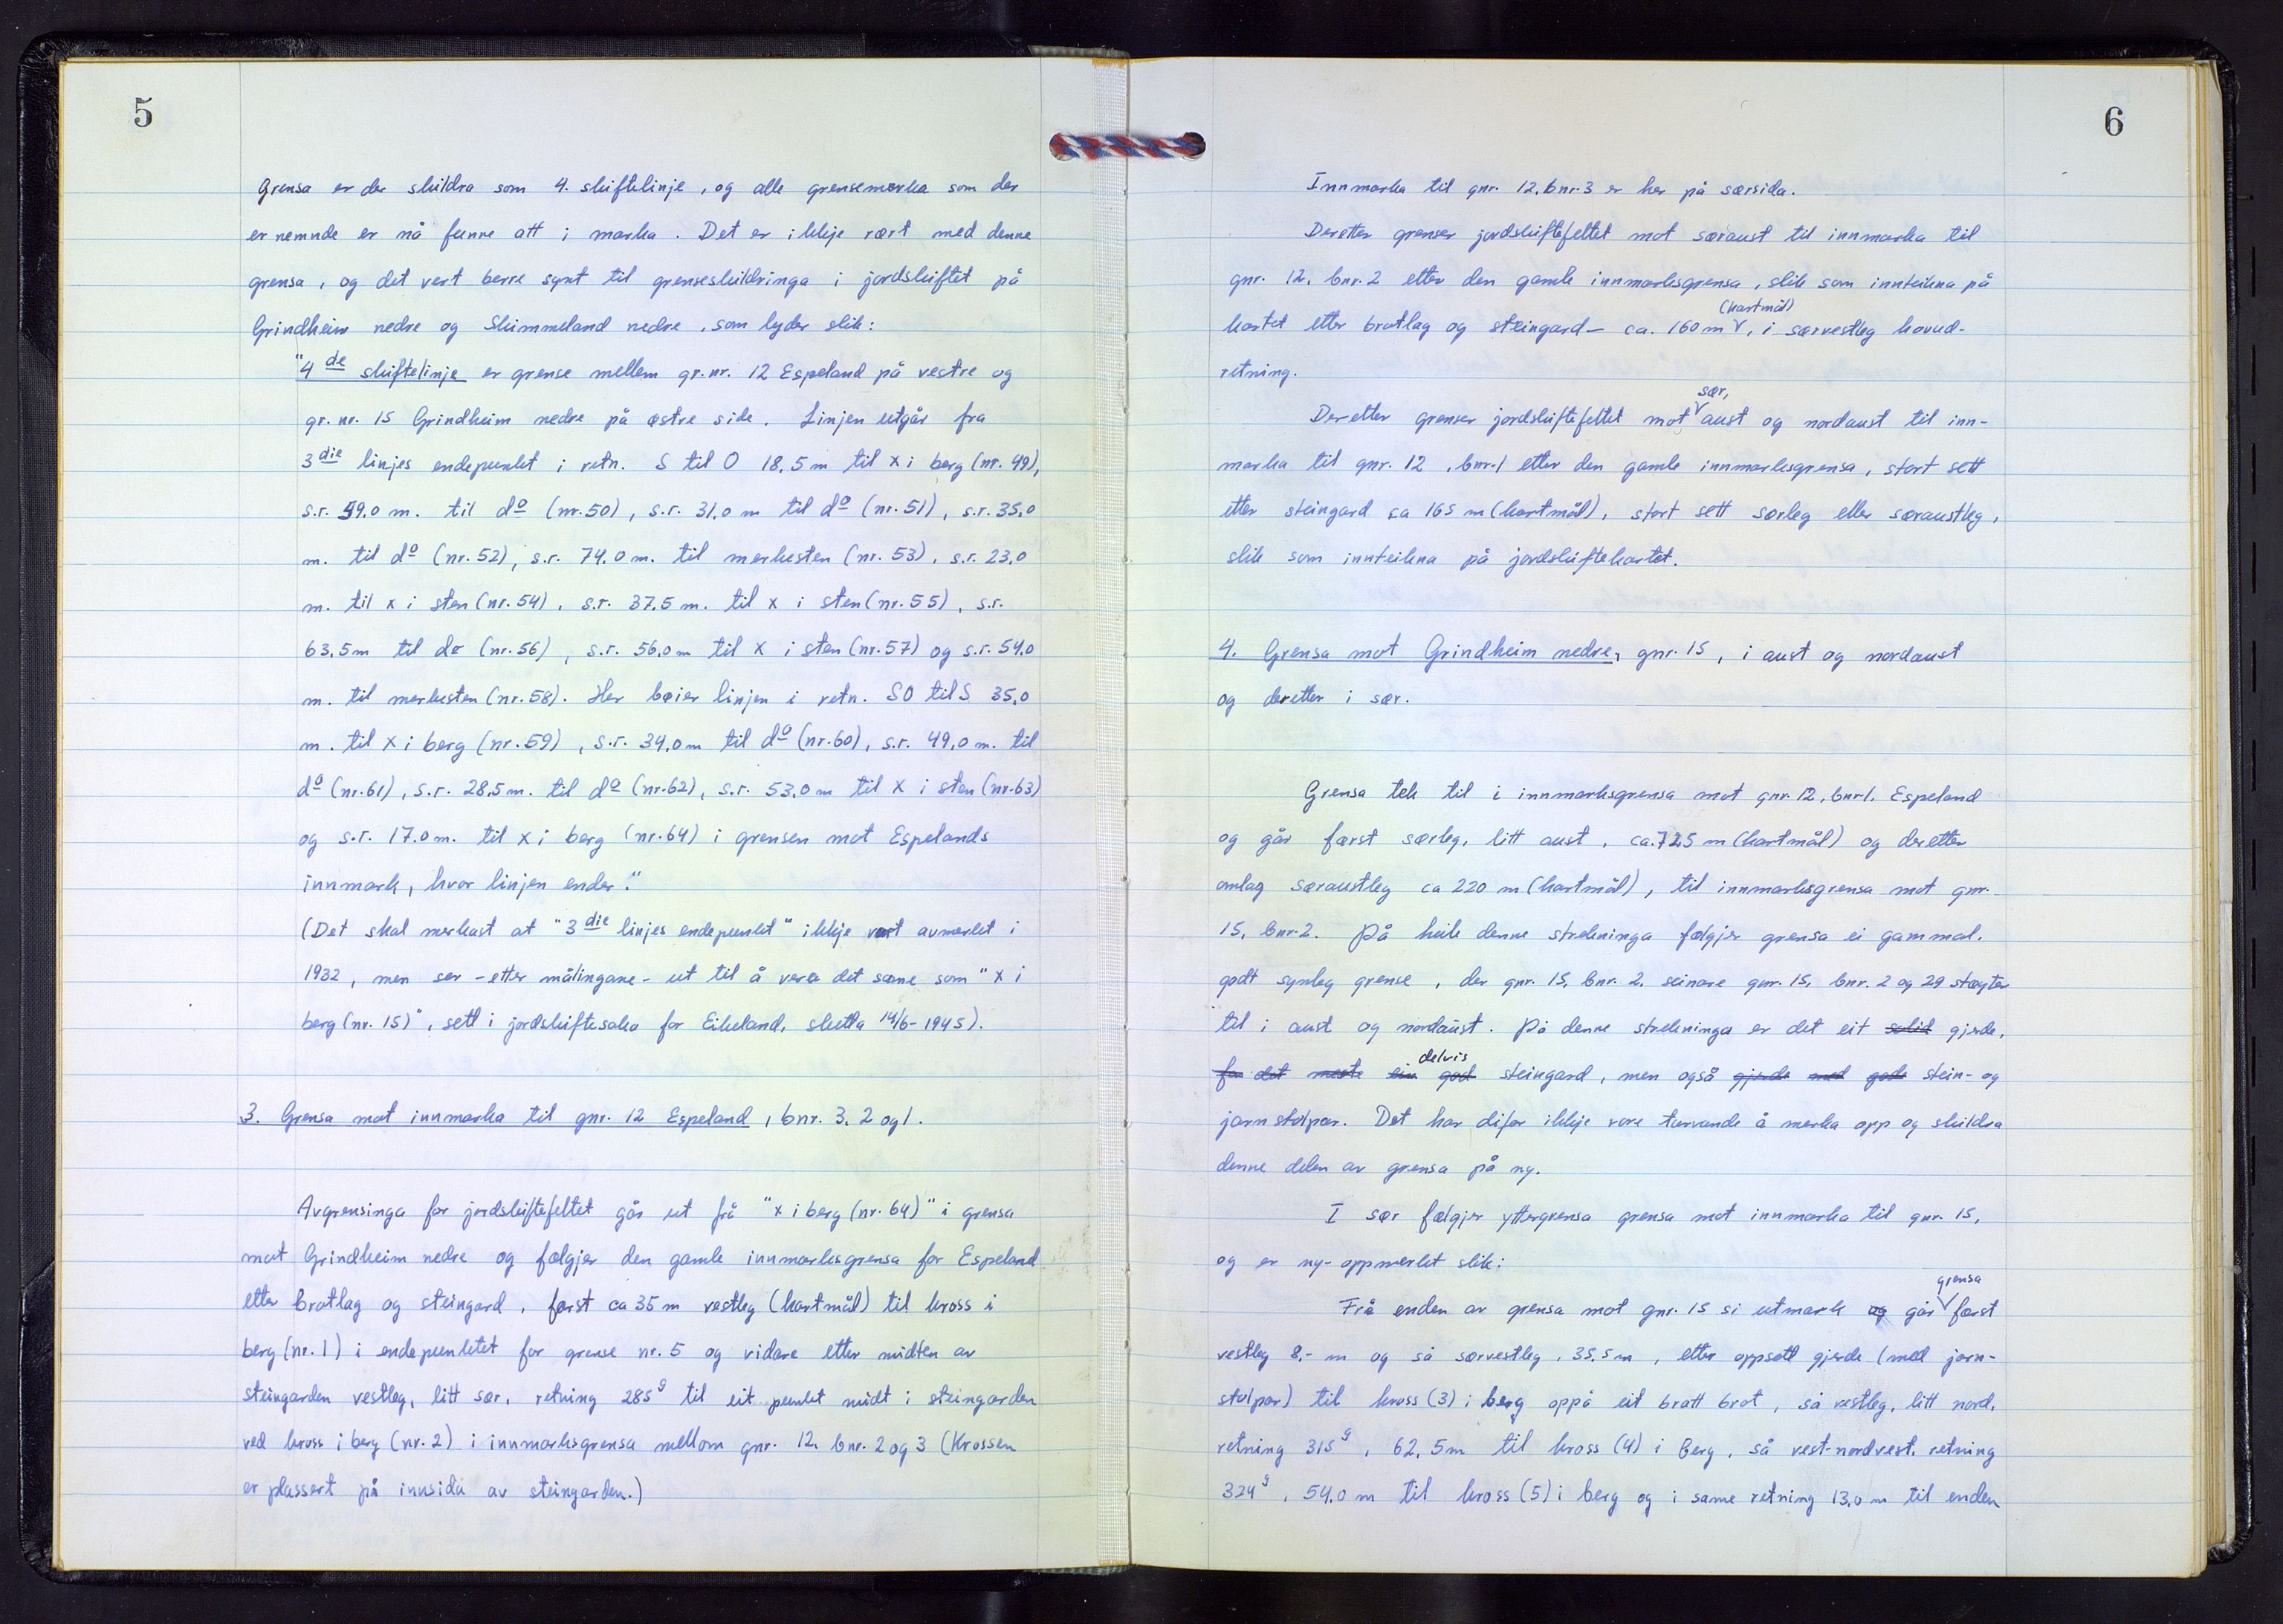 5
Grensa er der skildra som 4. skiftelinje, og alle grensemerka som der
er nemnde er nå funne att i marka. Det er ikkje rørt med denne
grensa, og det vert berre synt til grenseskildringa i jordskiftet på
Grindheim nedre og Skimmeland nedre, som lyder slik:
"4de skiftelinje er grense mellem gr.nr. 12 Espeland på vestre og
gr.nr. 15 Grindheim nedre på østre side. Linjen utgår fra
3die linjes endepunkt i retn. S til O 18,5 m til x i berg (nr. 49),
s.r. 59.0 m. til do (nr.50), s.r. 31.0 m til do (nr.51), s.r. 35,0
m. til do (nr. 52), s.r. 74.0 m. til merkesten (nr. 53), s.r. 23,0
m. til x i sten (nr. 54), s.r. 37.5 m. til x i sten (nr. 55), s.r.
63,5m til do (nr. 56), s.r. 56.0m til x i sten (nr.57) og s.r. 54.0
m. til merkesten (nr. 58). Her bøier linjen i retn. SO til S 35,0
m. til x i berg (nr. 59), s.r. 34,0m til do (nr.60), s.r. 49,0 m. til
do (nr.61), s.r. 28,5 m. til do (nr.62), s.r. 53.0 m til x i sten (nr.63)
og s.r. 17.0 m. til x i berg (nr.64) i grensen mot Espelands
innmark, hvor linjen ender."
(Det skal merkast at "3die linjes endepunkt" ikkje vart avmerket i
1932, men ser - etter målingane - ut til å vera det same som "x i
berg (nr. 15)", sett i jordskiftesaka for Eikeland, slutta 14/6-1945).
3. Grensa mot innmarka til gnr. 12 Espeland, bnr. 3, 2 og 1.
Avgrensinga for jordskiftefeltet går ut frå "x i berg (nr. 64)" i grensa
mot Grindheim nedre og følgjer den gamle innmarksgrensa for Espeland
etter brotlag og steingard, først ca 35 m vestleg (kartmål) til kross i
berg (nr. 1) i endepunktet for grense nr. 5 og vidare etter midten av
steingarden vestleg, litt sør, retning 285g til eit punkt midt i steingarden
ved kross i berg (nr. 2) i innmarksgrensa mellom gnr. 12, bnr. 2 og 3 (Krossen
er plassert på innsida av steingarden.)
6
Innmarka til gnr. 12, bnr. 3 er her på sørsida.
Deretter grenser jordskiftefeltet mot søraust til innmarka til
gnr. 12, bnr. 2 etter den gamle innmarksgrensa, slik som innteikna på
(kartmål)
kartet etter brotlag og steingard - ca. 160 m, i sørvestleg hovud-
retning.
sør,
Deretter grenser jordskiftefeltet mot aust og nordaust til inn-
marka til gnr. 12, bnr. 1 etter den gamle innmarksgrensa, stort sett
etter steingard ca 165 m (kartmål), stort sett sørleg eller søraustleg,
slik som innteikna på jordskiftekartet.
4. Grensa mot Grindheim nedre, gnr. 15, i aust og nordaust
og deretter i sør.
Grensa tek til i innmarksgrensa mot gnr. 12, bnr. 1, Espeland
og går først sørleg, litt aust, ca. 725 m (kartmål) og deretter
omlag søraustleg ca 220 m (kartmål), til innmarksgrensa mot gnr.
15, bnr. 2. På heile denne strekninga følgjer grensa ei gammal,
godt synleg grense, der gnr. 15, bnr. 2, seinare gnr. 15, bnr. 2 og 29 støyter
til i aust og nordaust. På denne strekninga er det eit solid gjerde,
delvis
for det meste ein god steingard, men også gjerde med gode stein- og
jarnstolpar. Det har difor ikkje vore turvande å merka opp og skildra
denne delen av grensa på ny.
I sør følgjer yttergrensa grensa mot innmarka til gnr. 15,
og er ny-oppmerket slik:
grensa
Frå enden av grensa mot gnr. 15 si utmark og går først
vestleg 8,- m og så sørvestleg, 35,5 m, etter oppsett gjerde (med jarn-
stolpar) til kross (3) i berg oppå eit bratt brot, så vestleg, litt nord,
retning 315g, 62,5m til kross (4) i berg, så vest-nordvest, retning
324g, 54.0 m til kross (5) i berg og i same retning 13,0 m til enden